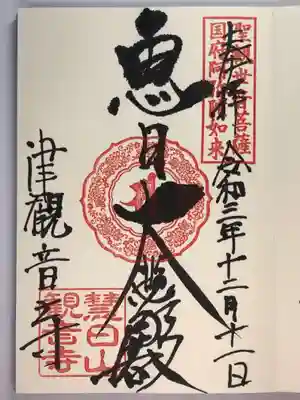 聖観世音菩薩
国府阿弥陀如来
奉拝 令和三年十二月十一日
恵日大
津観音寺
慧日山
観音寺